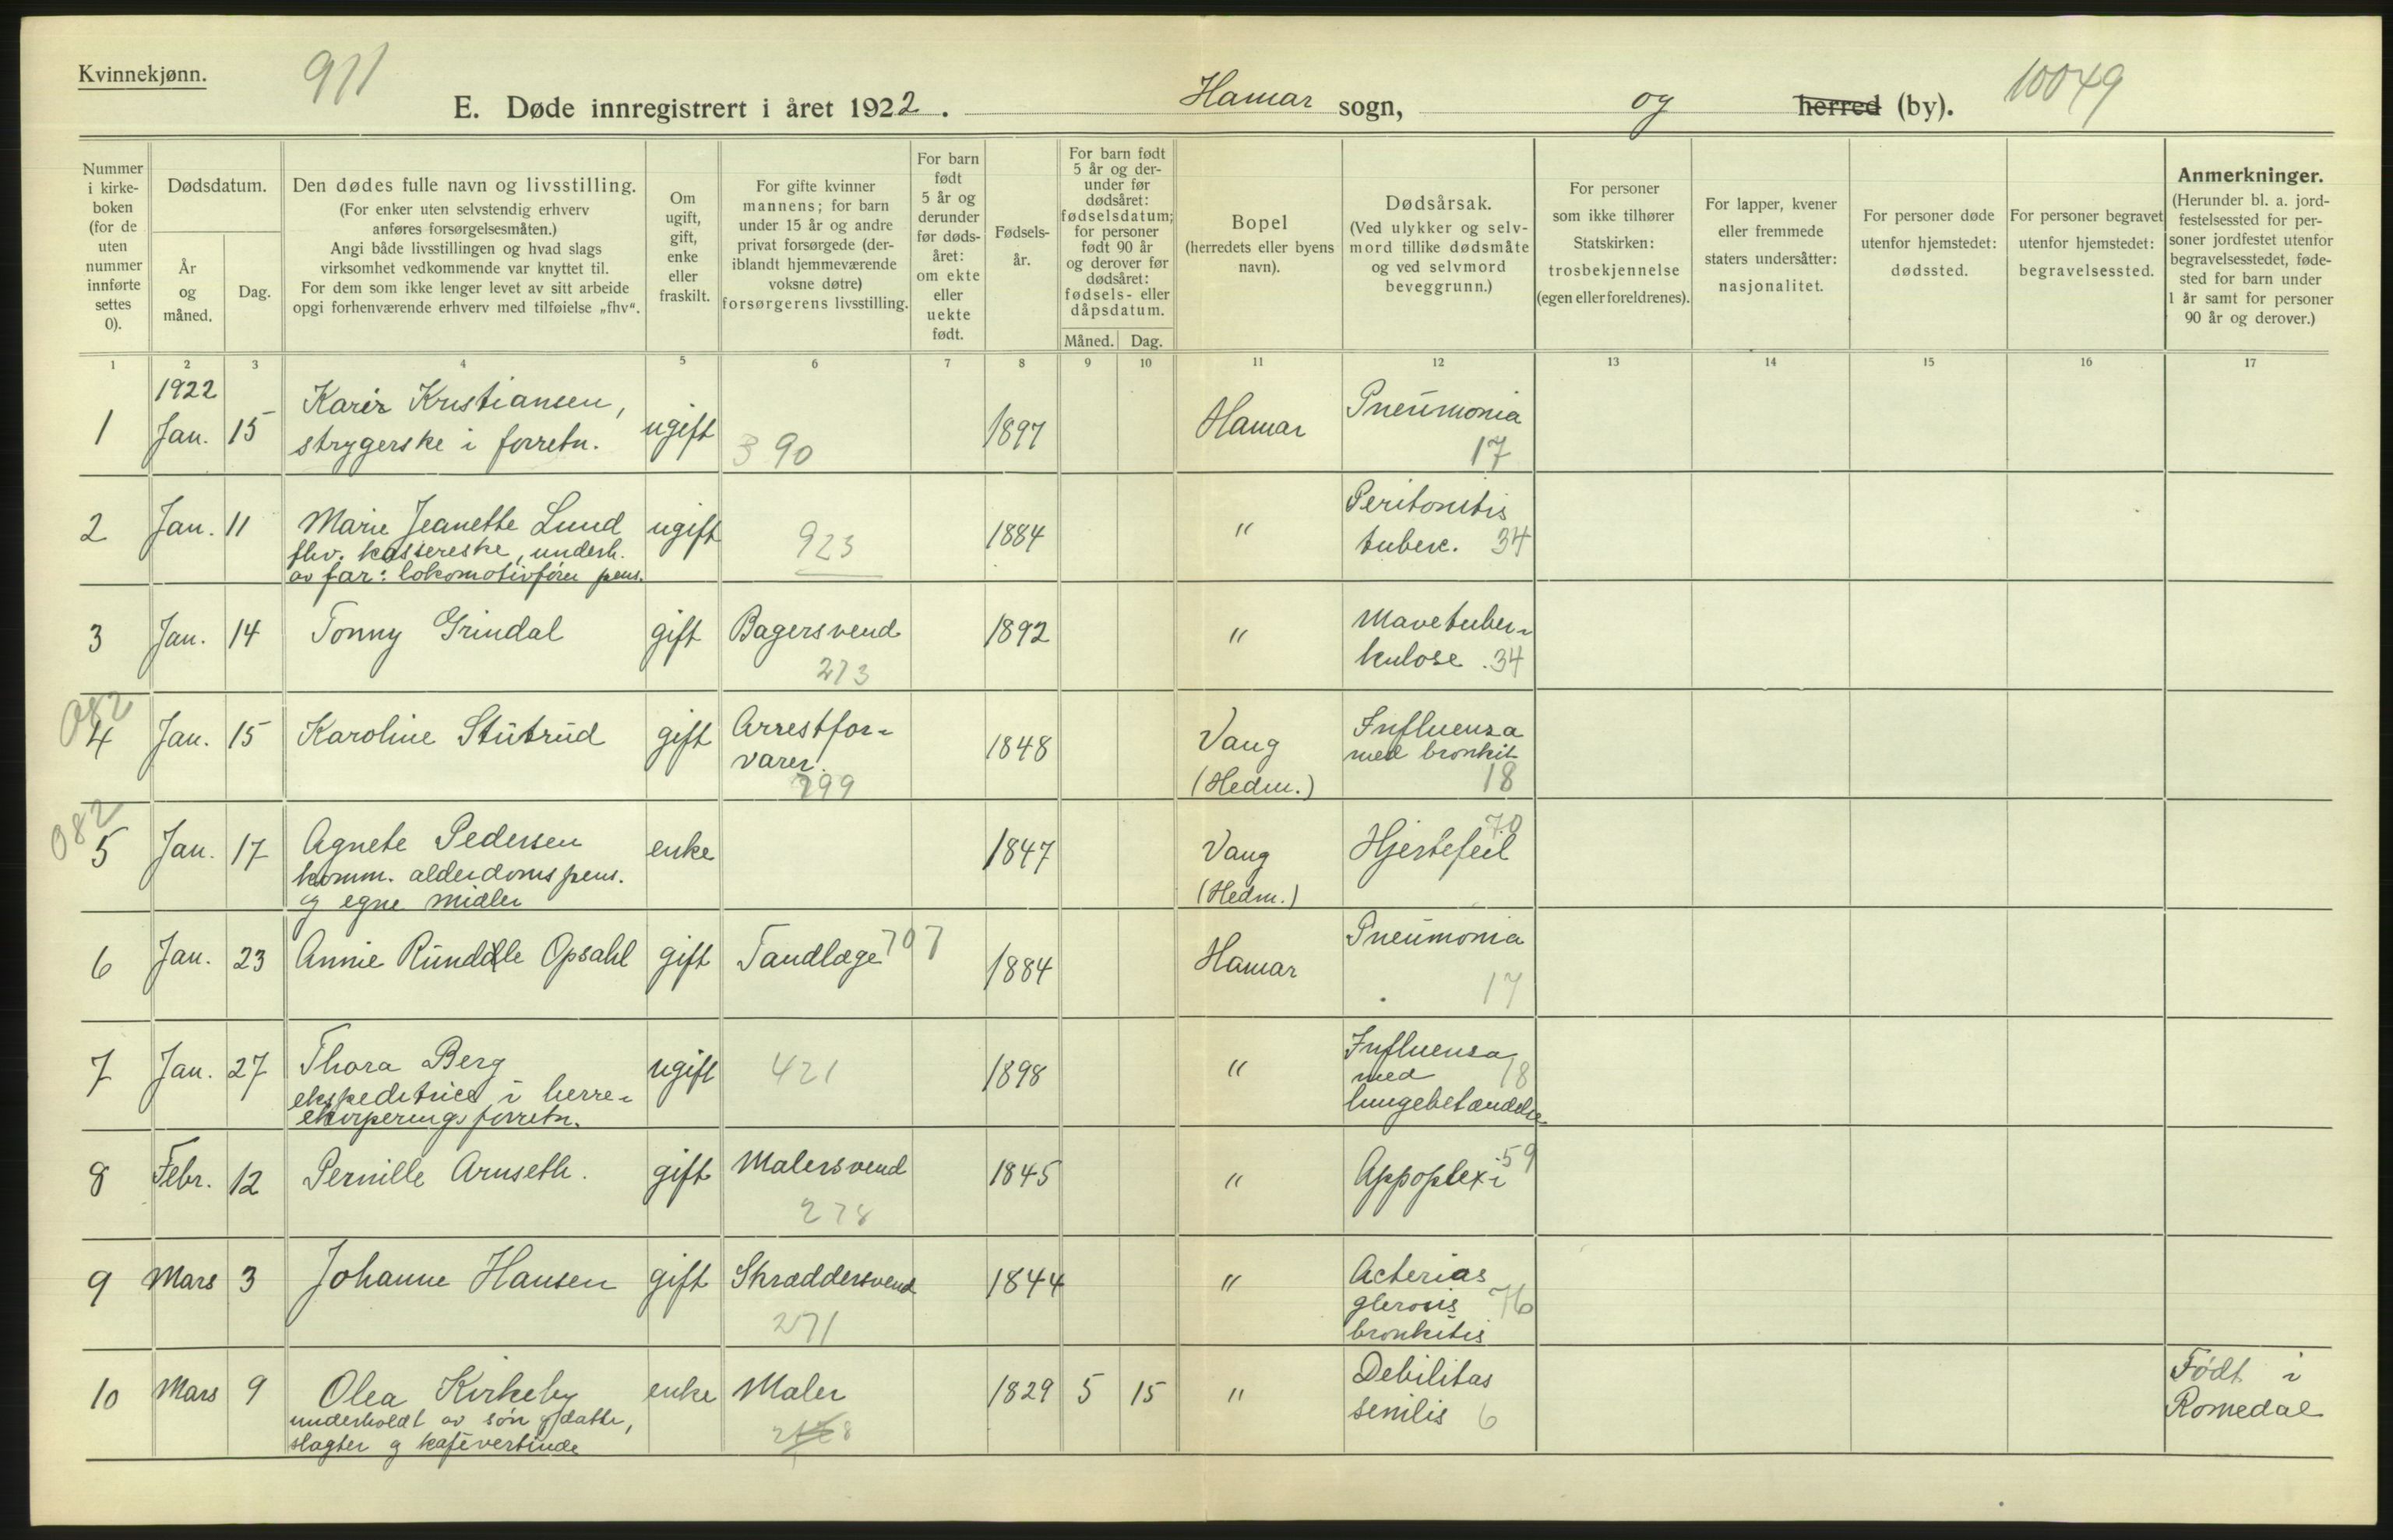 Kvinnekjønn.
911
E. Døde innregistrert i året 1922. Hamar sogn, og herred (by).
10049
Nummer i kirke-boken (for de uten nummer innførte settes 0).
Dødsdatum.
År og måned.
Dag.
Den dødes fulle navn og livsstilling.
(For enker uten selvstendig erhverv
anføres forsørgelsesmåten.)
Angi både livsstillingen og hvad slags
virksomhet vedkommende var knyttet til.
For dem som ikke lenger levet av sitt arbeide
opgi forhenværende erhverv med tilføielse „fhv“.
Om
ugift,
gift,
enke
eller
fraskilt.
For gifte kvinner
mannens; for barn
under 15 år og andre
privat forsørgede (der-
iblandt hjemmeværende
voksne døtre)
forsørgerens livsstilling.
For barn
født
5 år og
derunder
før døds-
året:
om ekte
eller
uekte
født.
Fødsels-
år.
For barn født
5 år og der-
under før
dødsåret:
fødselsdatum;
for personer
født 90 år
og derover før
dødsåret:
fødsels- eller
dåpsdatum.
Måned. Dag.
Bopel
(herredets eller byens
navn).
Dødsårsak.
(Ved ulykker og selv-
mord tillike dødsmåte
og ved selvmord
beveggrunn.)
For personer
som ikke tilhører
Statskirken:
trosbekjennelse
(egen eller foreldrenes).
For lapper, kvener
eller fremmede
staters undersåtter:
nasjonalitet.
For personer døde
utenfor hjemstedet:
dødssted.
For personer begravet
utenfor hjemstedet:
begravelsessted.
Anmerkninger.
(Herunder bl. a. jord-
festelsessted for per-
soner jordfestet utenfor
begravelsesstedet, føde-
sted for barn under
1 år samt for personer
90 år og derover.)
1 2 3 4 5 6 7 8 9 10 11 12 13 14 15 16 17
1922
1 Jan. 15 Karin Kristiansen, ugift 390 1897 Hamar Pneumonia
strygerske i forretn. 17
2 Jan. 11 Marie Jeanette Lund ugift 923 1884 " Peritonitis
fhv. kassereske, underh. tuberc. 34
av far: lokomotivfører pens.
3 Jan. 14 Tonny Grindal gift Bagersvend 1892 " Mavetuber-
273 kulose. 34
082
4 Jan. 15 Karoline Stutrud gift Arrestfor- 1848 Vang Influensa
varer. (Hedm.) med bronkit
299 18
082
5 Jan. 17 Agnete Pedersen enke 1847 Vang Hjertefeil 70
komm. alderdomspens. (Hedm.)
og egne midler
6 Jan. 23 Annie Rundle Opsahl gift Tandlæge 707 1884 Hamar Pneumonia
17
7 Jan. 27 Thora Berg ugift 421 1898 " Influensa
ekspeditrice i herre- med 18
ekviperingsforretn. lungebetændelse
8 Febr. 12 Pernille Arnseth. gift Malersvend 1845 " Appoplexi 59
278
9 Mars 3 Johanne Hansen gift Skræddersvend 1844 " Acterias
271 glerosis 76
bronkitis
10 Mars 9 Olea Kirkeby enke Maler 1829 5 15 " Debilitas Født i
underholdt av søn og datter, senilis 6 Romedal
slagter og kafévertinde